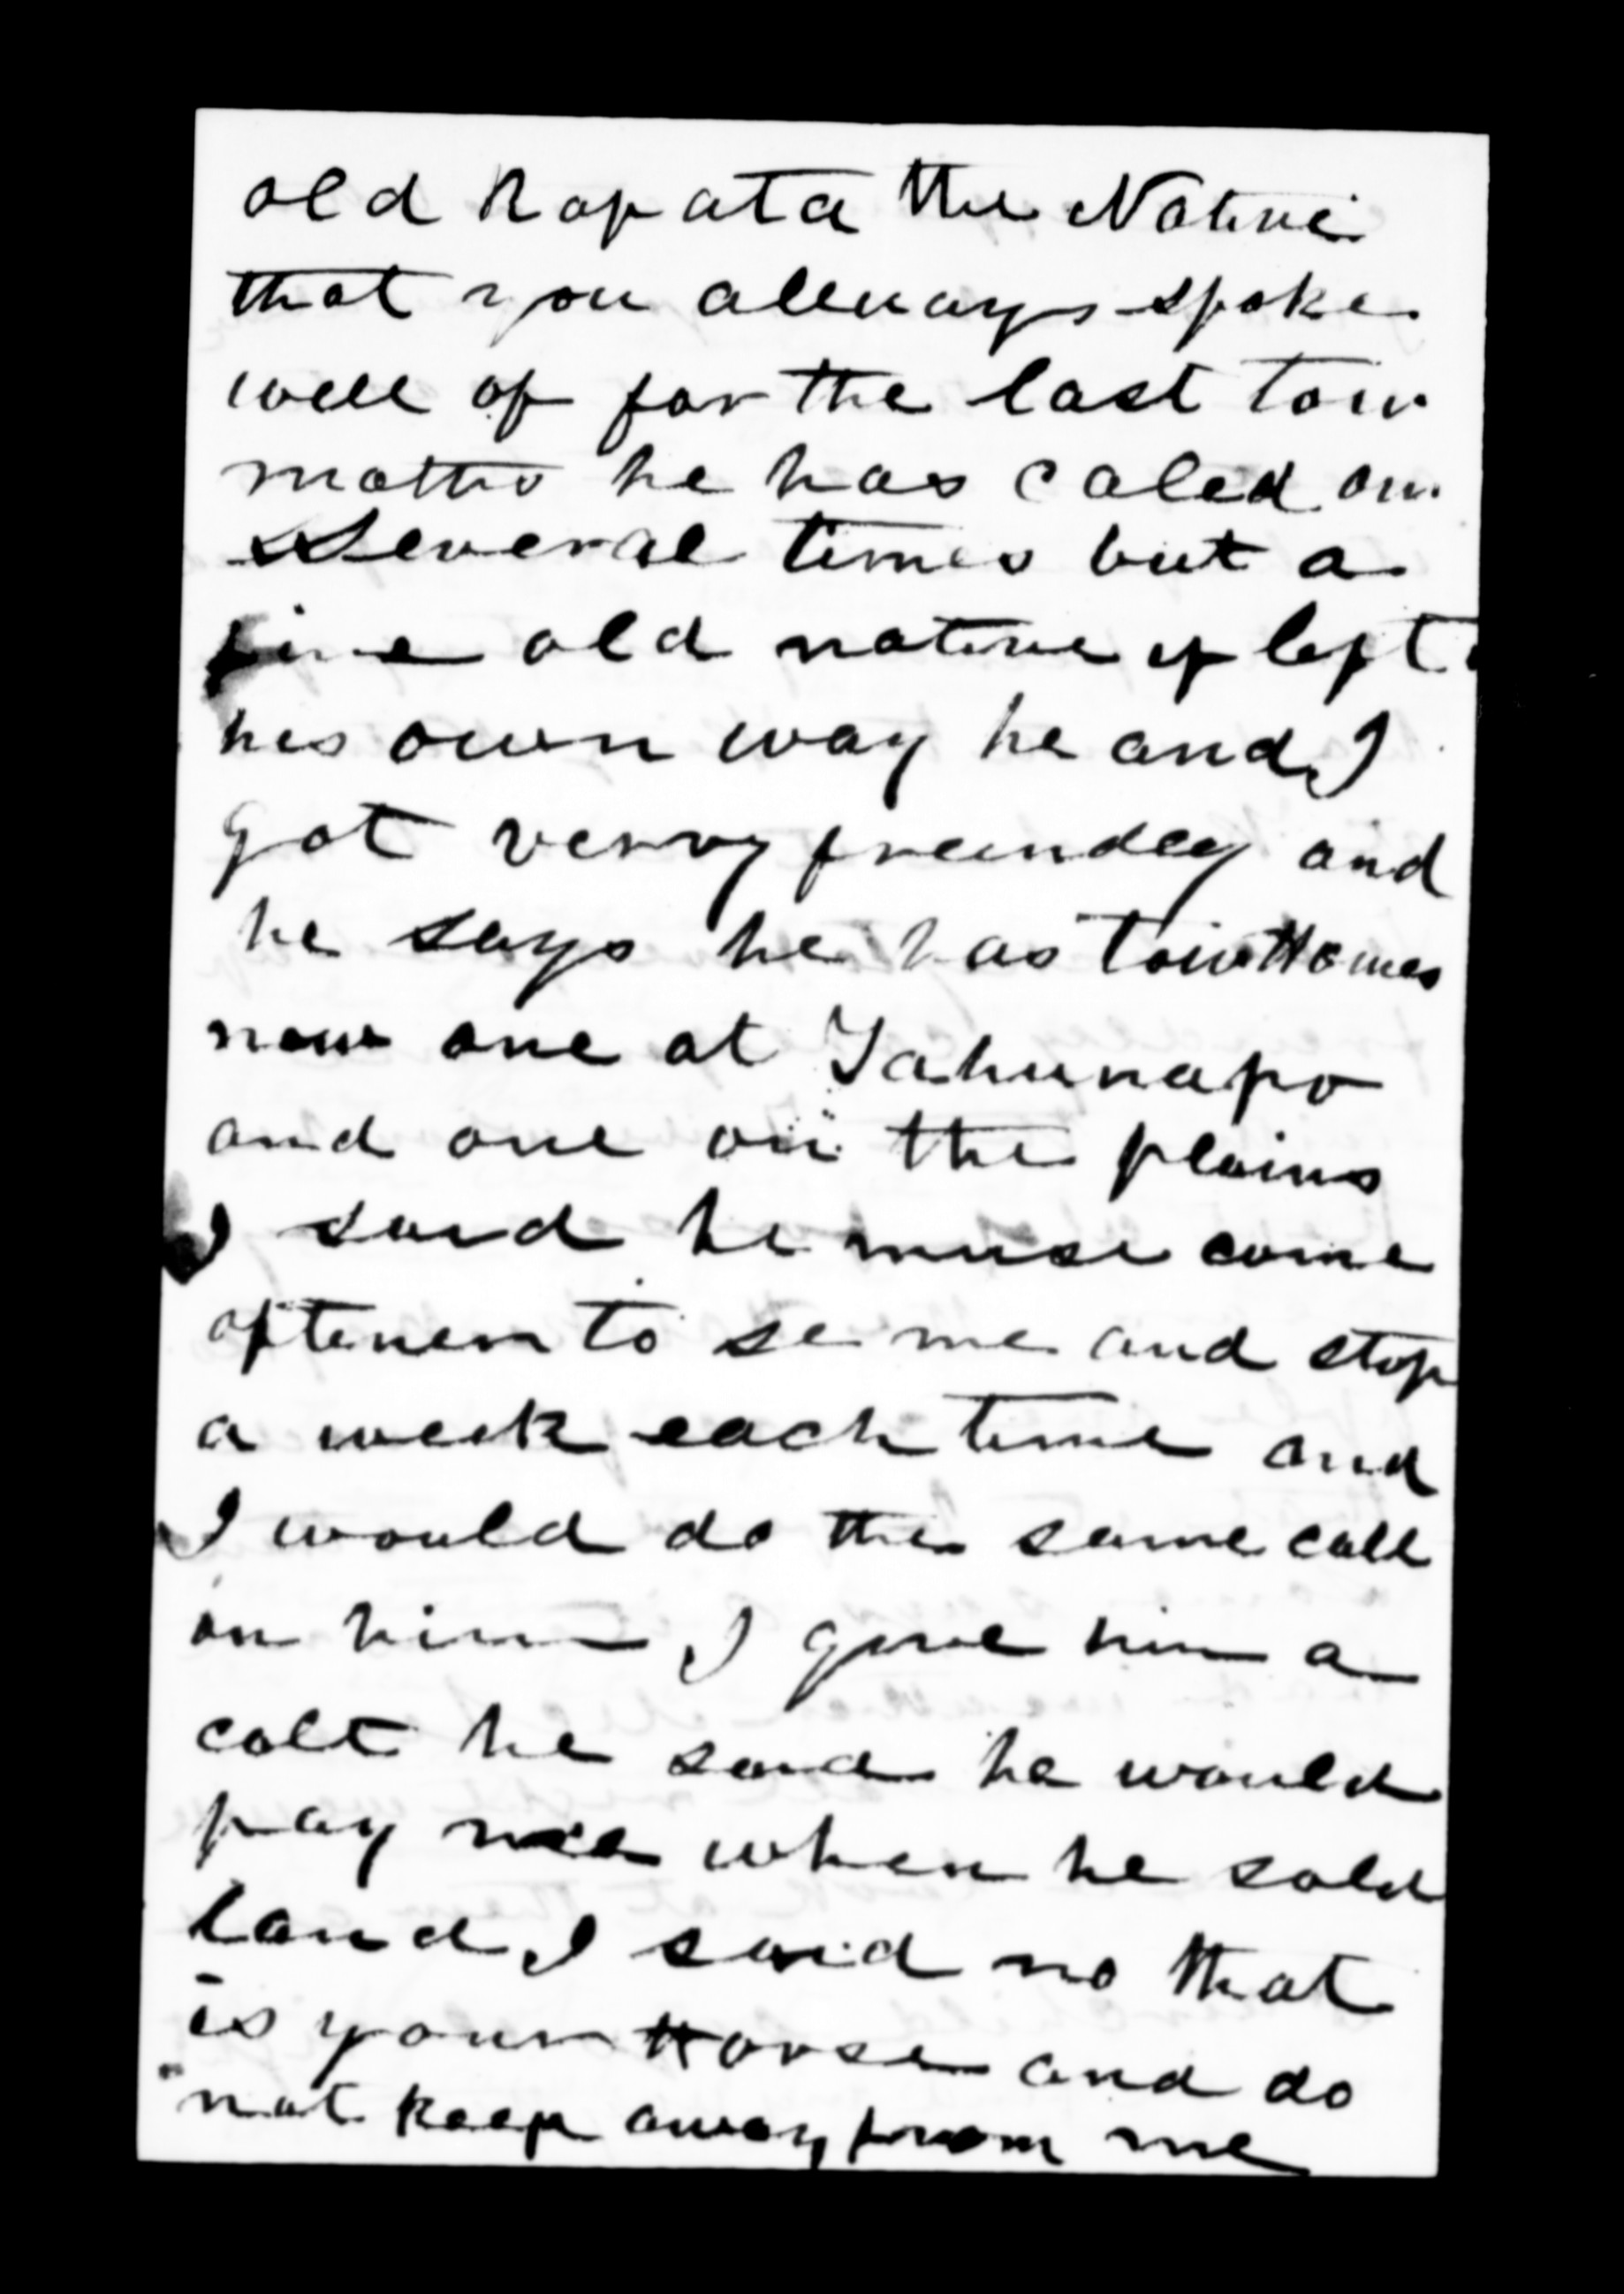 old Ropata the Native
that you allways spoke
well of for the last tow
maths he has caled on
several times but a
fine old native if left
his own way he and I
got verry freindly and
he says he has tow Homes
now one at Tahunapo
and one on the plains
I said he muse come
oftener to se me and stop
a week each time and
I would do the same call
on him I gave him a
colt he said he would
pay me when he sold
land I said no that
is your Horse and do
not keep away from me